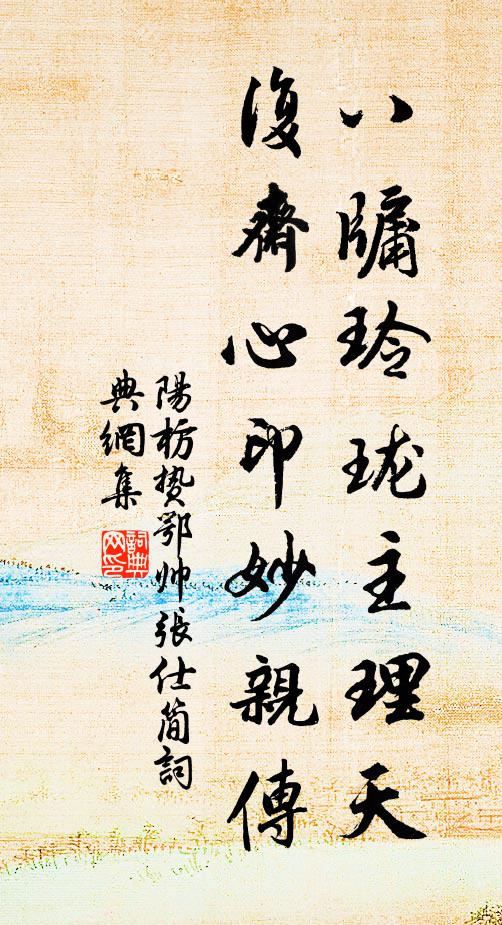 八牗玲珑主理天
復齋心印妙親傳
陽枋贽鄂帅張仕簡詞
典網集
詞典
网印